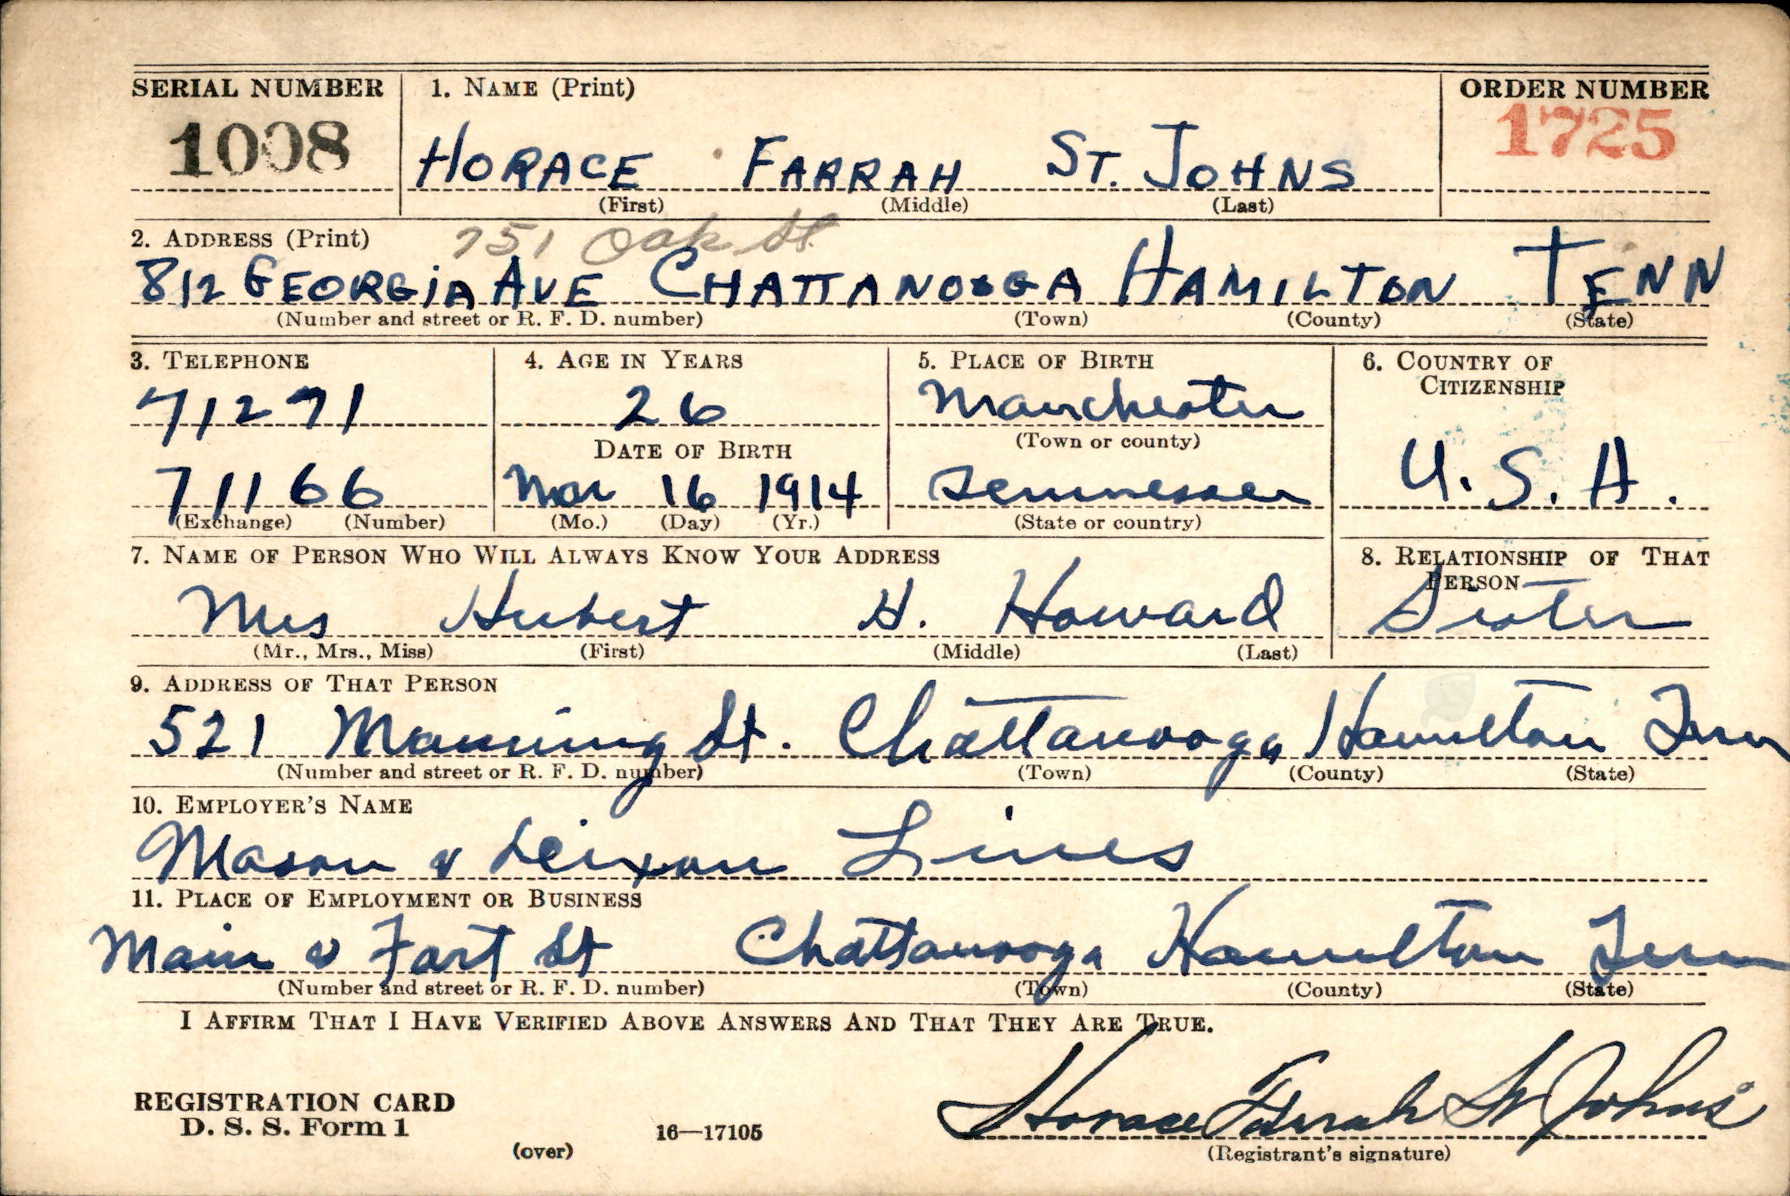 SERIAL NUMBER 1. NAME (Print) ORDER NUMBER
1008 HORACE FARRAH ST. JOHNS 1725
(First) (Middle) (Last)
2. ADDRESS (Print) 751 Oak St
812 GEORGIA AVE CHATTANOOGA HAMILTON TENN
(Number and street or R. F. D. number) (Town) (County) (State)
3. TELEPHONE 4. AGE IN YEARS 5. PLACE OF BIRTH 6. COUNTRY OF CITIZENSHIP
71271 26 Manchester
DATE OF BIRTH (Town or county)
71166 Mar 16 1914 Tennessee U.S.A.
(Exchange) (Number) (Mo.) (Day) (Yr.) (State or country)
7. NAME OF PERSON WHO WILL ALWAYS KNOW YOUR ADDRESS 8. RELATIONSHIP OF THAT PERSON
Mrs Hubert H. Howard Sister
(Mr., Mrs., Miss) (First) (Middle) (Last)
9. ADDRESS OF THAT PERSON
521 Manning St. Chattanooga Hamilton Tenn
(Number and street or R. F. D. number) (Town) (County) (State)
10. EMPLOYER'S NAME
Mason & Dixon Lines
11. PLACE OF EMPLOYMENT OR BUSINESS
Main & Fort St Chattanooga Hamilton Tenn
(Number and street or R. F. D. number) (Town) (County) (State)
I AFFIRM THAT I HAVE VERIFIED ABOVE ANSWERS AND THAT THEY ARE TRUE.
Horace Farrah St Johns
REGISTRATION CARD
D. S. S. Form 1 16—17105
(over) (Registrant's signature)